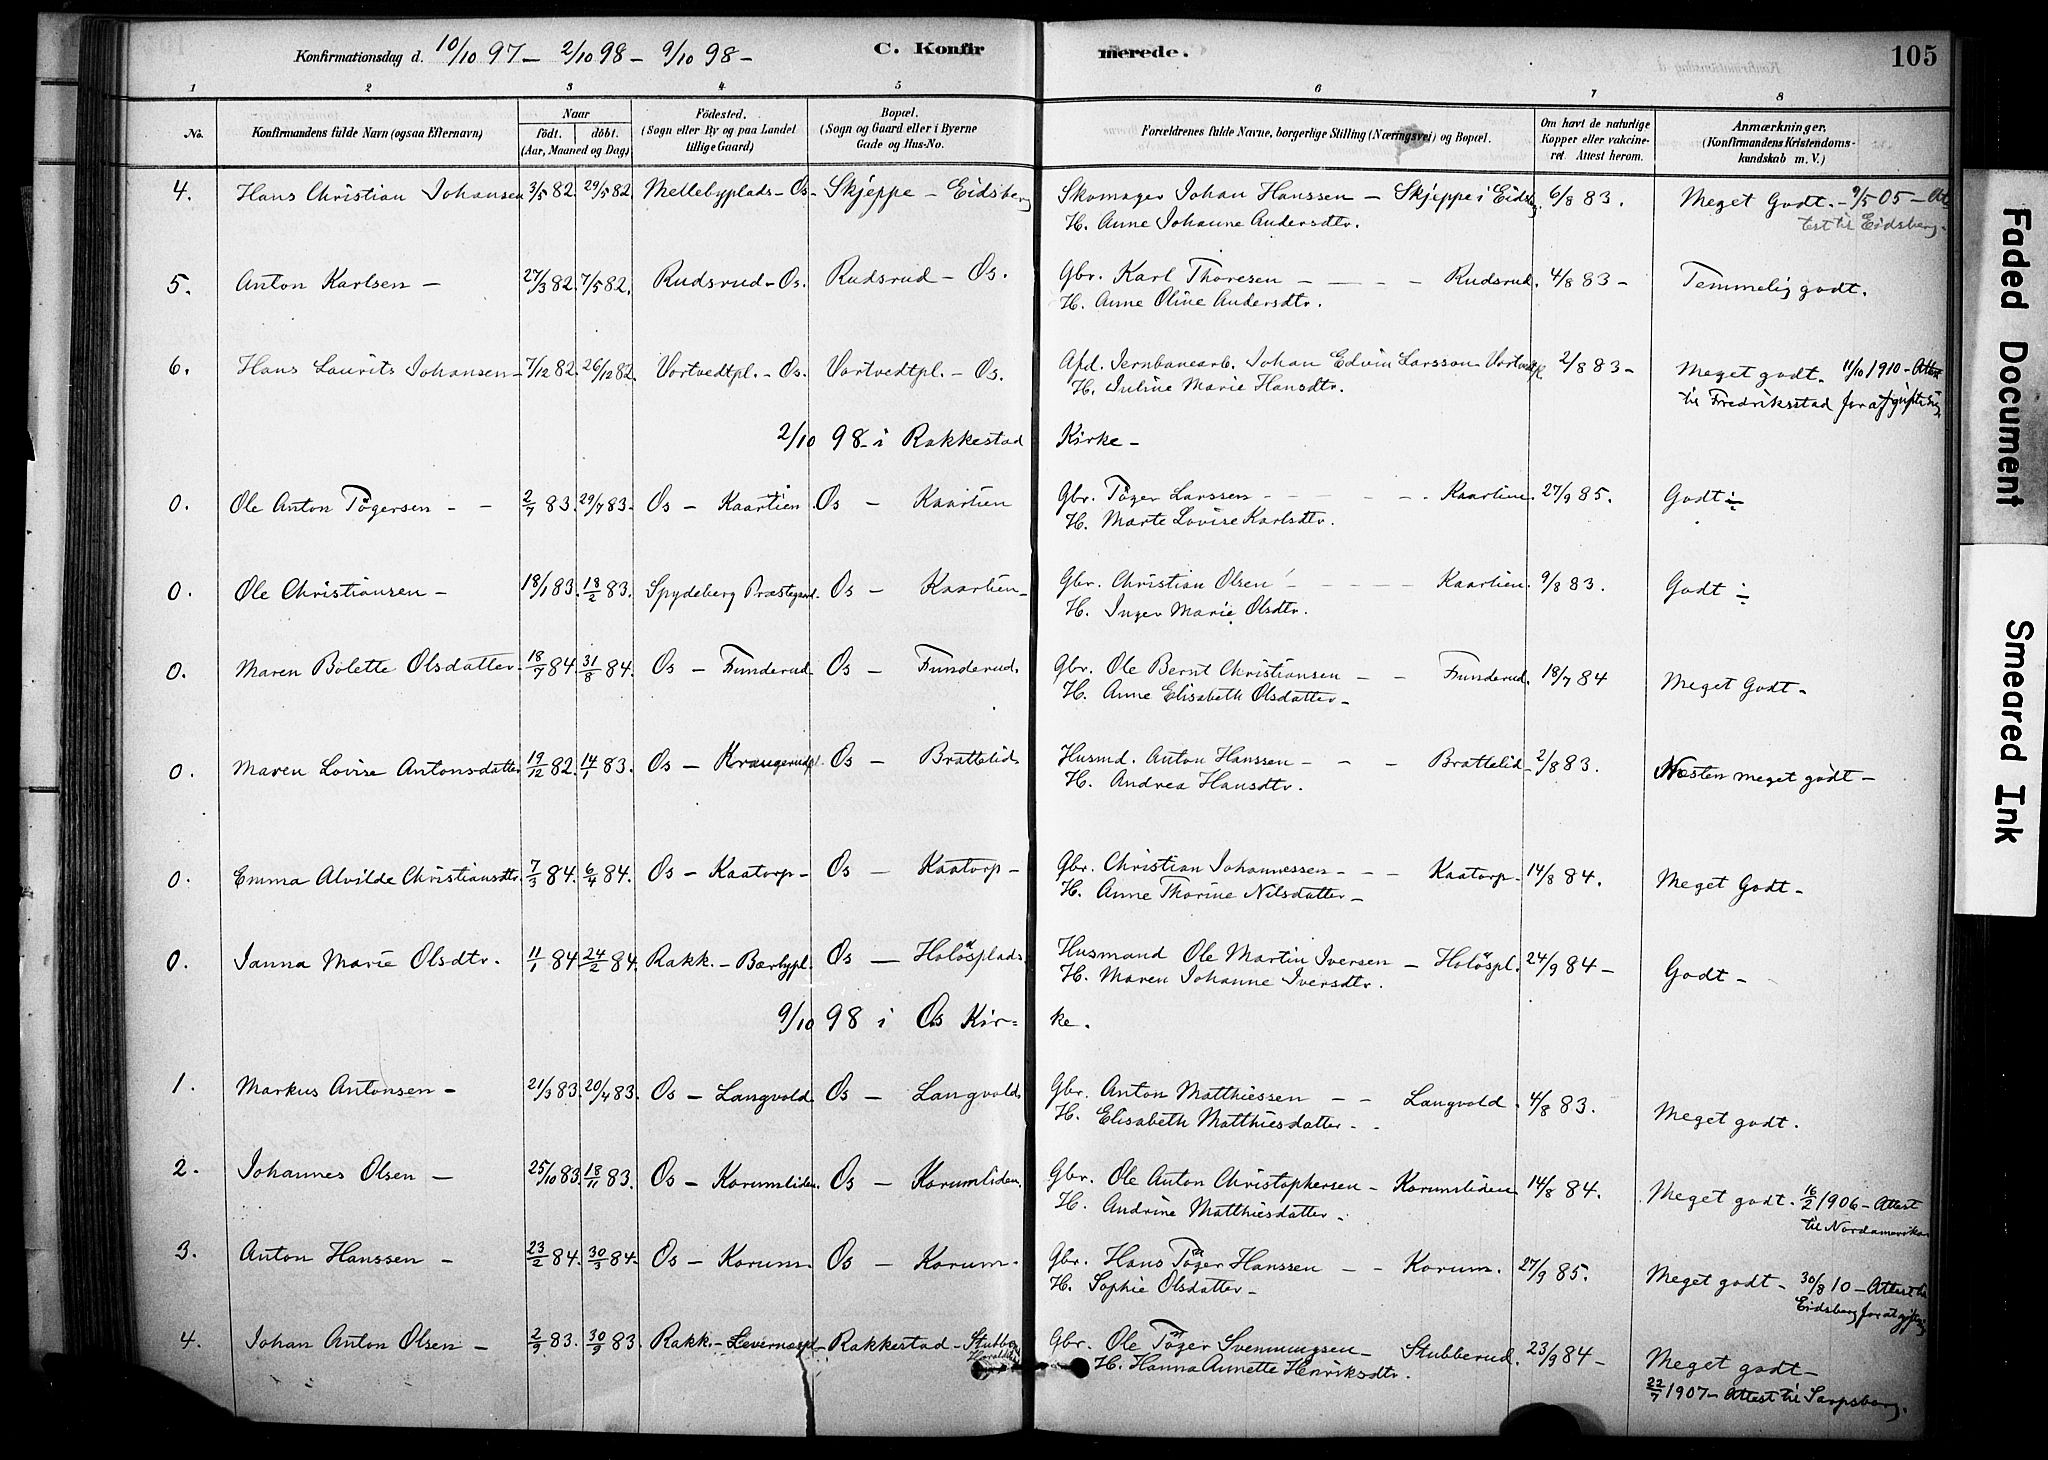 Konfirmationsdag d. 10/10 97 – 2/10 98 – 9/10 98 – C. Konfirmerede. 105
1 2 3 4 5 6 7 8
No. Konfirmandens fulde Navn (ogsaa Efternavn) Naar födt. döbt. (Aar, Maaned og Dag) Födested. (Sogn eller By og paa Landet tillige Gaard) Bopæl. (Sogn og Gaard eller i Byerne Gade og Hus-No. Forældrenes fulde Navne, borgerlige Stilling (Næringsvei) og Bopæl. Om havt de naturlige Kopper eller vakcineret. Attest herom. Anmærkninger. (Konfirmandens Kristendomskundskab m. V.)
4. Hans Christian Johansen 3/5 82 29/5 82 Mellebyplads – Os – Skjeppe – Eidsberg Skomager Johan Hanssen – Skjeppe i Eidsbg. 6/8 83. Meget Godt. – 9/5 05 – At-
H. Anne Johanne Andersdtr. test til Eidsberg.
5. Anton Karlsen – 27/3 82. 7/5 82. Rudsrud – Os. Rudsrud – Os. Gbr. Karl Thoresen – – – – Rudsrud. 4/8 83 – Temmelig godt.
H. Anne Oline Andersdtr.
6. Hans Laurits Johansen – 7/12 82. 26/12 82. Vortvedtpl. – Os. Vortvedtpl. – Os. Afd. Jernbanearb. Johan Edvin Larsson – Vortvedtpl. 2/8 83 – Meget godt. 11/10 1910 – Attest
H. Juline Marie Hansdtr. til Fredriksstad for
2/10 98 – i Rakkestad Kirke –
0. Ole Anton Tögersen – – 2/7 83. 29/7 83. Os – Kaartien. Os – Kaartien Gbr. Töger Larssen – – – – – Kaartien. 27/9 85. Godt ÷
H. Marte Lovise Karlsdtr.
0. Ole Christiansen – 18/1 83. 18/2 83. Spydeberg Præstegaard. Os – Kaartien – Gbr. Christian Olsen – – – – – Kaartien. 9/8 83. Godt ÷
H. Inger Marie Olsdtr.
0. Maren Bolette Olsdatter. 18/7 84. 31/8 84. Os – Funderud. Os – Funderud. Gbr. Ole Bernt Christiansen – – Funderud. 18/7 84 Meget Godt –
H. Anne Elisabeth Olsdatter –
0. Maren Lovise Antonsdatter 19/12 82. 14/1 83. Os – Krangerudpl. Os – Brattelid. Husmd. Anton Hanssen – – – Brattelid – 2/8 83. Næsten meget godt –
H. Andrea Hansdtr.
0. Emma Alvilde Christiansdtr. 7/3 84. 6/4 84. Os – Kaatorp – Os – Kaatorp – Gbr. Christian Johannessen – – – Kaatorp – 14/8 84. Meget Godt –
H. Anne Thorine Nilsdatter –
0. Janna Marie Olsdtr. 11/1 84 24/2 84. Rakk. – Bærbypl. Os – Holösplads. Husmand Ole Martin Iversen – Holöspl. 24/9 84 – Godt –
H. Maren Johanne Iversdtr.
9/10 98 i Os Kirke.
1. Markus Antonsen – 21/3 83. 20/4 83. Os – Langvold. Os – Langvold. Gbr. Anton Matthiessen – – Langvold. 4/8 83. Meget godt.
H. Elisabeth Matthiesdatter – .
2. Johannes Olsen – 25/10 83. 18/11 83. Os – Korumliden. Os – Korumliden. Gbr. Ole Anton Christophersen – Korumsliden 14/8 84. Meget godt. 16/2 1906 – Attest
H. Andrine Matthiesdatter – . til Nordamerika
3. Anton Hanssen – 23/2 84. 30/3 84 – Os – Korum – Os – Korum – Gbr. Hans Töger Hanssen – – Korum. 27/9 85. Meget godt – 30/8 10 – Attest til
H. Sophie Olsdatter – Eidsberg for
4. Johan Anton Olsen – 2/9 83. 30/9 83. Rakk. – Levernespl – Rakkestad – Stubberud Gbr. Ole Töger Svenningsen – Stubberud. 23/9 84 – Meget godt –
H. Hanna Annette Henriksdtr. 22/7 1907 – Attest til Sarpsborg.
Faded Document
Smeared Ink